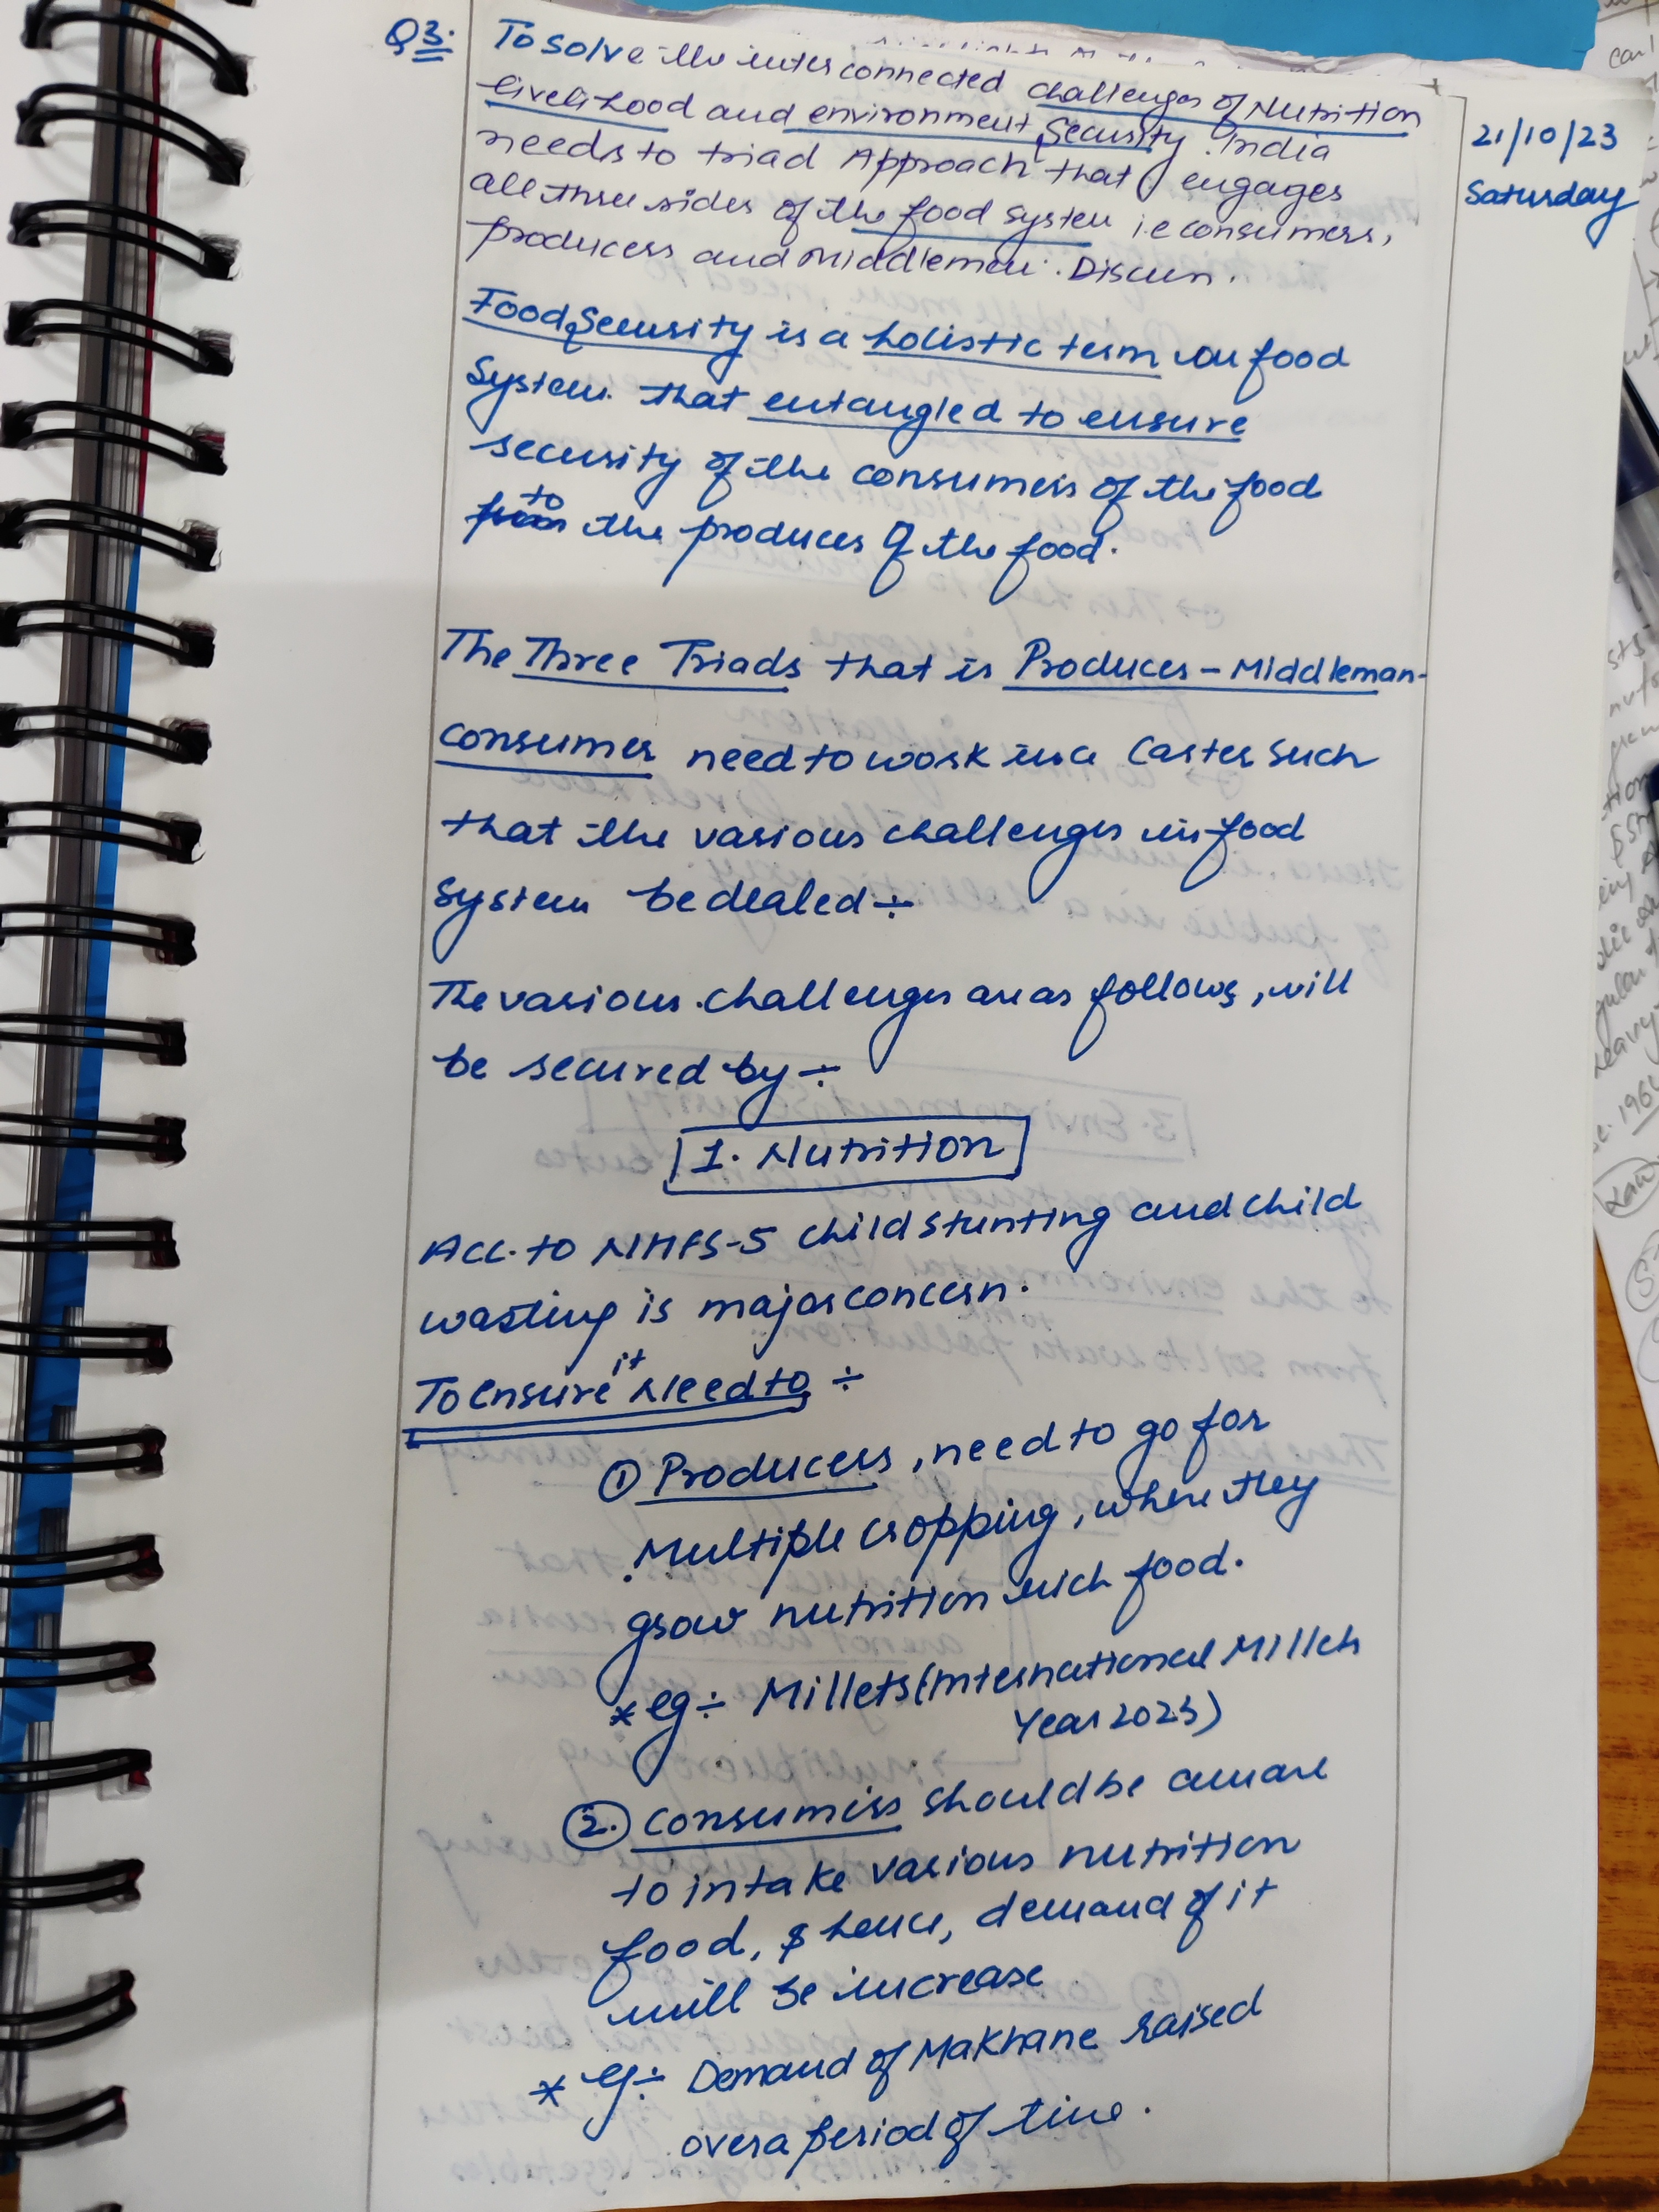 Q3. To solve the interconnected challenges of Nutrition
livelihood and environment security. India
needs to triad Approach that engages
all three sides of the food system i.e consumers,
producers and Middlemen. Discuss.
21/10/23
Saturday
Food Security is a holistic term on food
System that entangled to ensure
security of the consumers of the food
to the producers of the food.
The Three Triads that is Producers - Middleman -
consumer need to work in a Caster such
that the various challenges in food
system be dealed ÷
The various challenges are as follows, will
be secured by ÷
1. Nutrition
Acc. to NHFS-5 child stunting and child
wasting is major concern.
To ensure it Need to ÷
① Producers, need to go for
Multiple cropping, where they
grow nutrition rich food.
* eg ÷ Millets (International Millets
Year 2023)
②. consumers should be aware
to intake various nutrition
food, & hence, demand of it
will be increase
* eg ÷ Demand of Makhane raised
over a period of time.